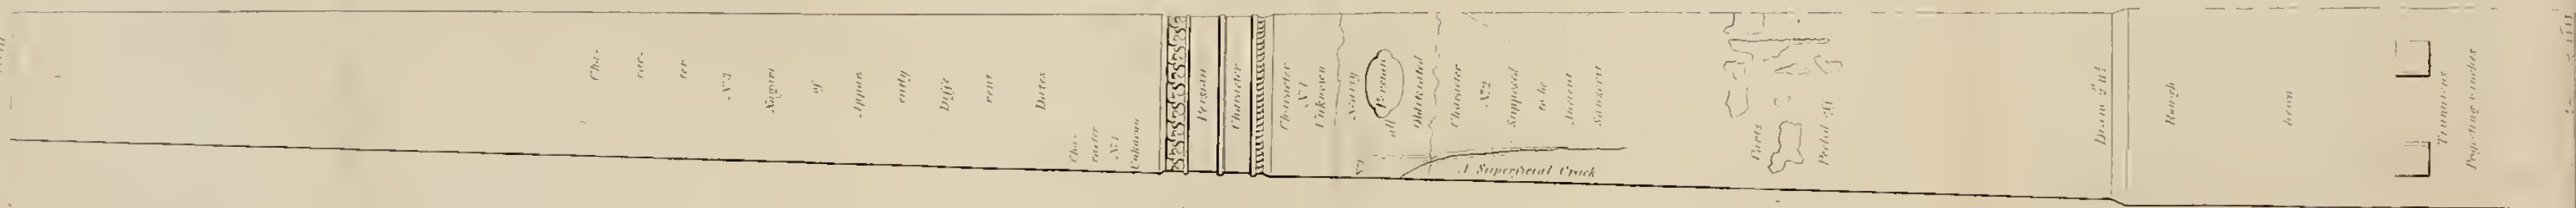 Cha-
rac-
ter
No. 3
Nagari
of
Appar-
ently
Diffe
rent
Dates
Cha-
racter
No. 1
Unknown
Persian
Character
Character
No. 1
Unknown
Nearly
all
Persian
Obliterated
Character
No. 2
Supposed
to be
Ancient
Sanscrit
A Superficial Crack
Parts
Peeled off
Rough
hewn
Projecting